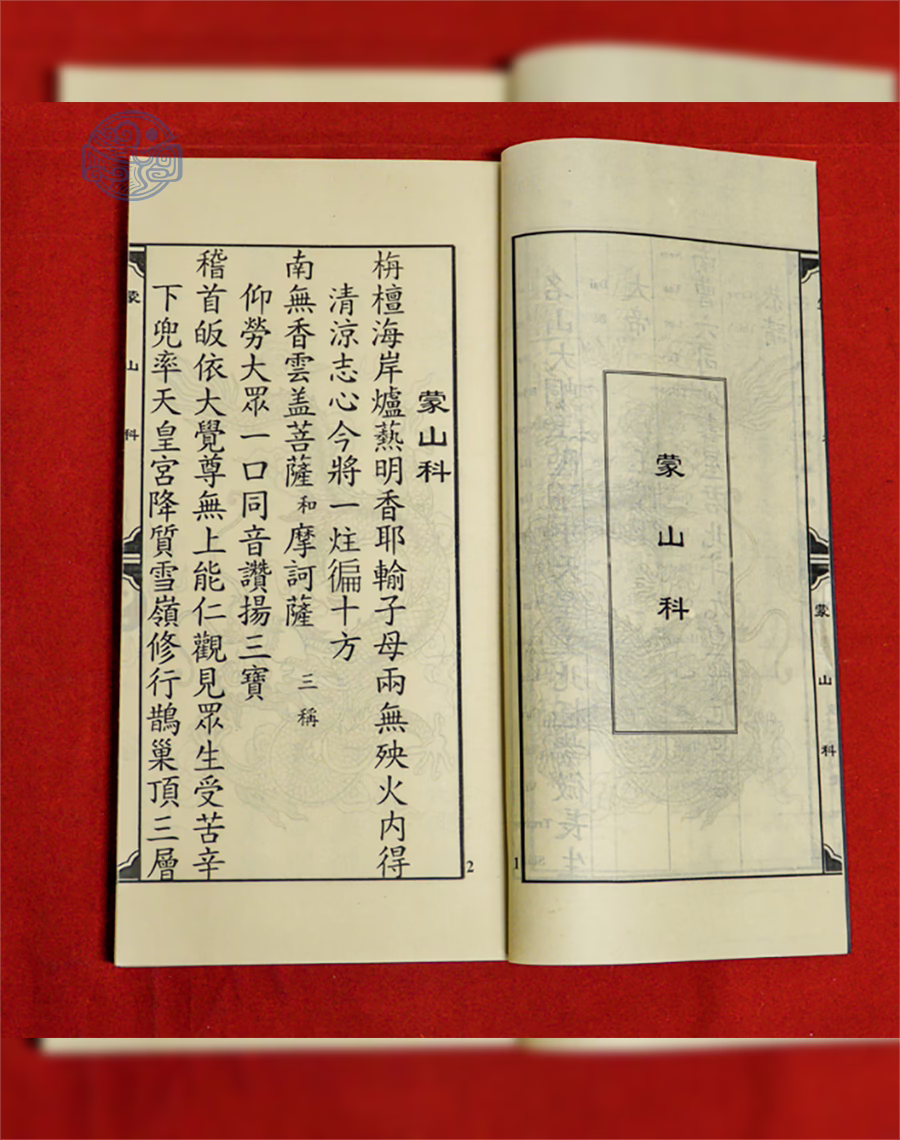 蒙山科
1
蒙山科
蒙山科
栴檀海岸爐爇明香耶輸子母兩無殃火内得
清涼志心今將一炷徧十方
南無香雲盖菩薩 和 摩訶薩 三稱
仰勞大眾一口同音讚揚三寶
稽首皈依大覺尊無上能仁觀見眾生受苦辛
下兜率天皇宮降質雪嶺修行鵲巢頂三層
2
蒙山科